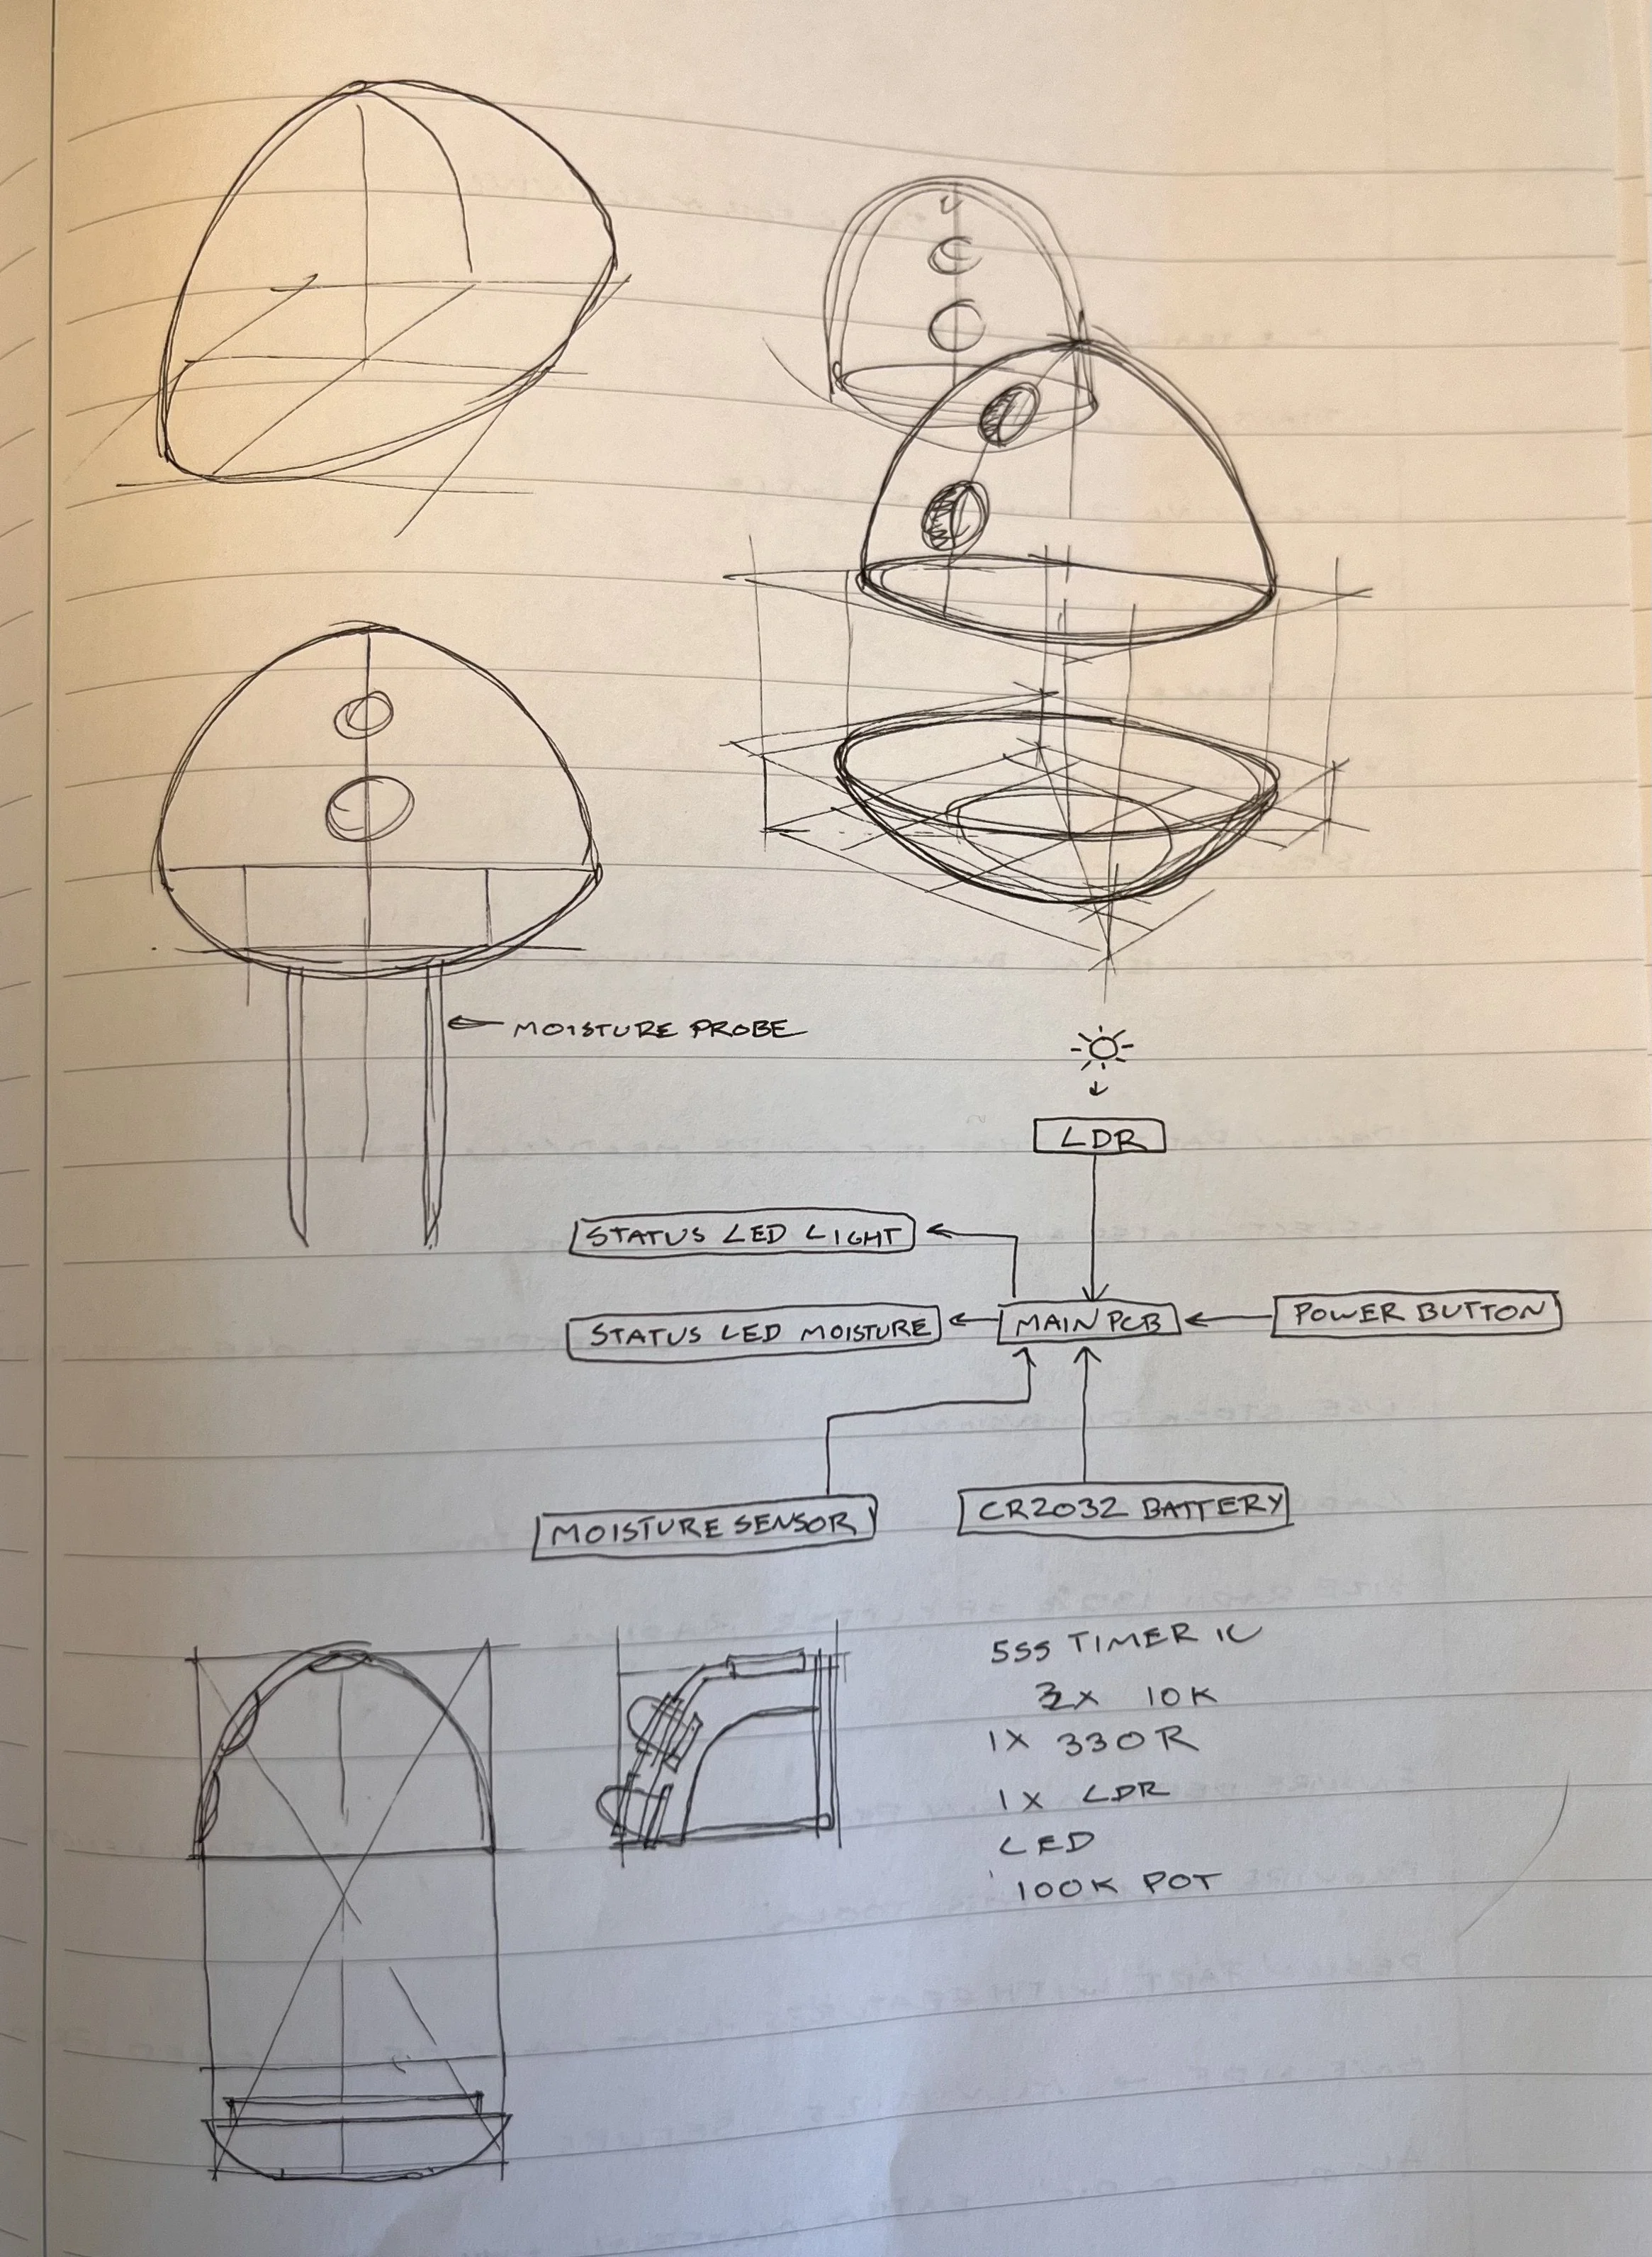 MOISTURE PROBE
LDR
STATUS LED LIGHT
STATUS LED MOISTURE
MAIN PCB
POWER BUTTON
MOISTURE SENSOR
CR2032 BATTERY
555 TIMER IC
10K
1X 330R
1X LDR
LED
100K POT